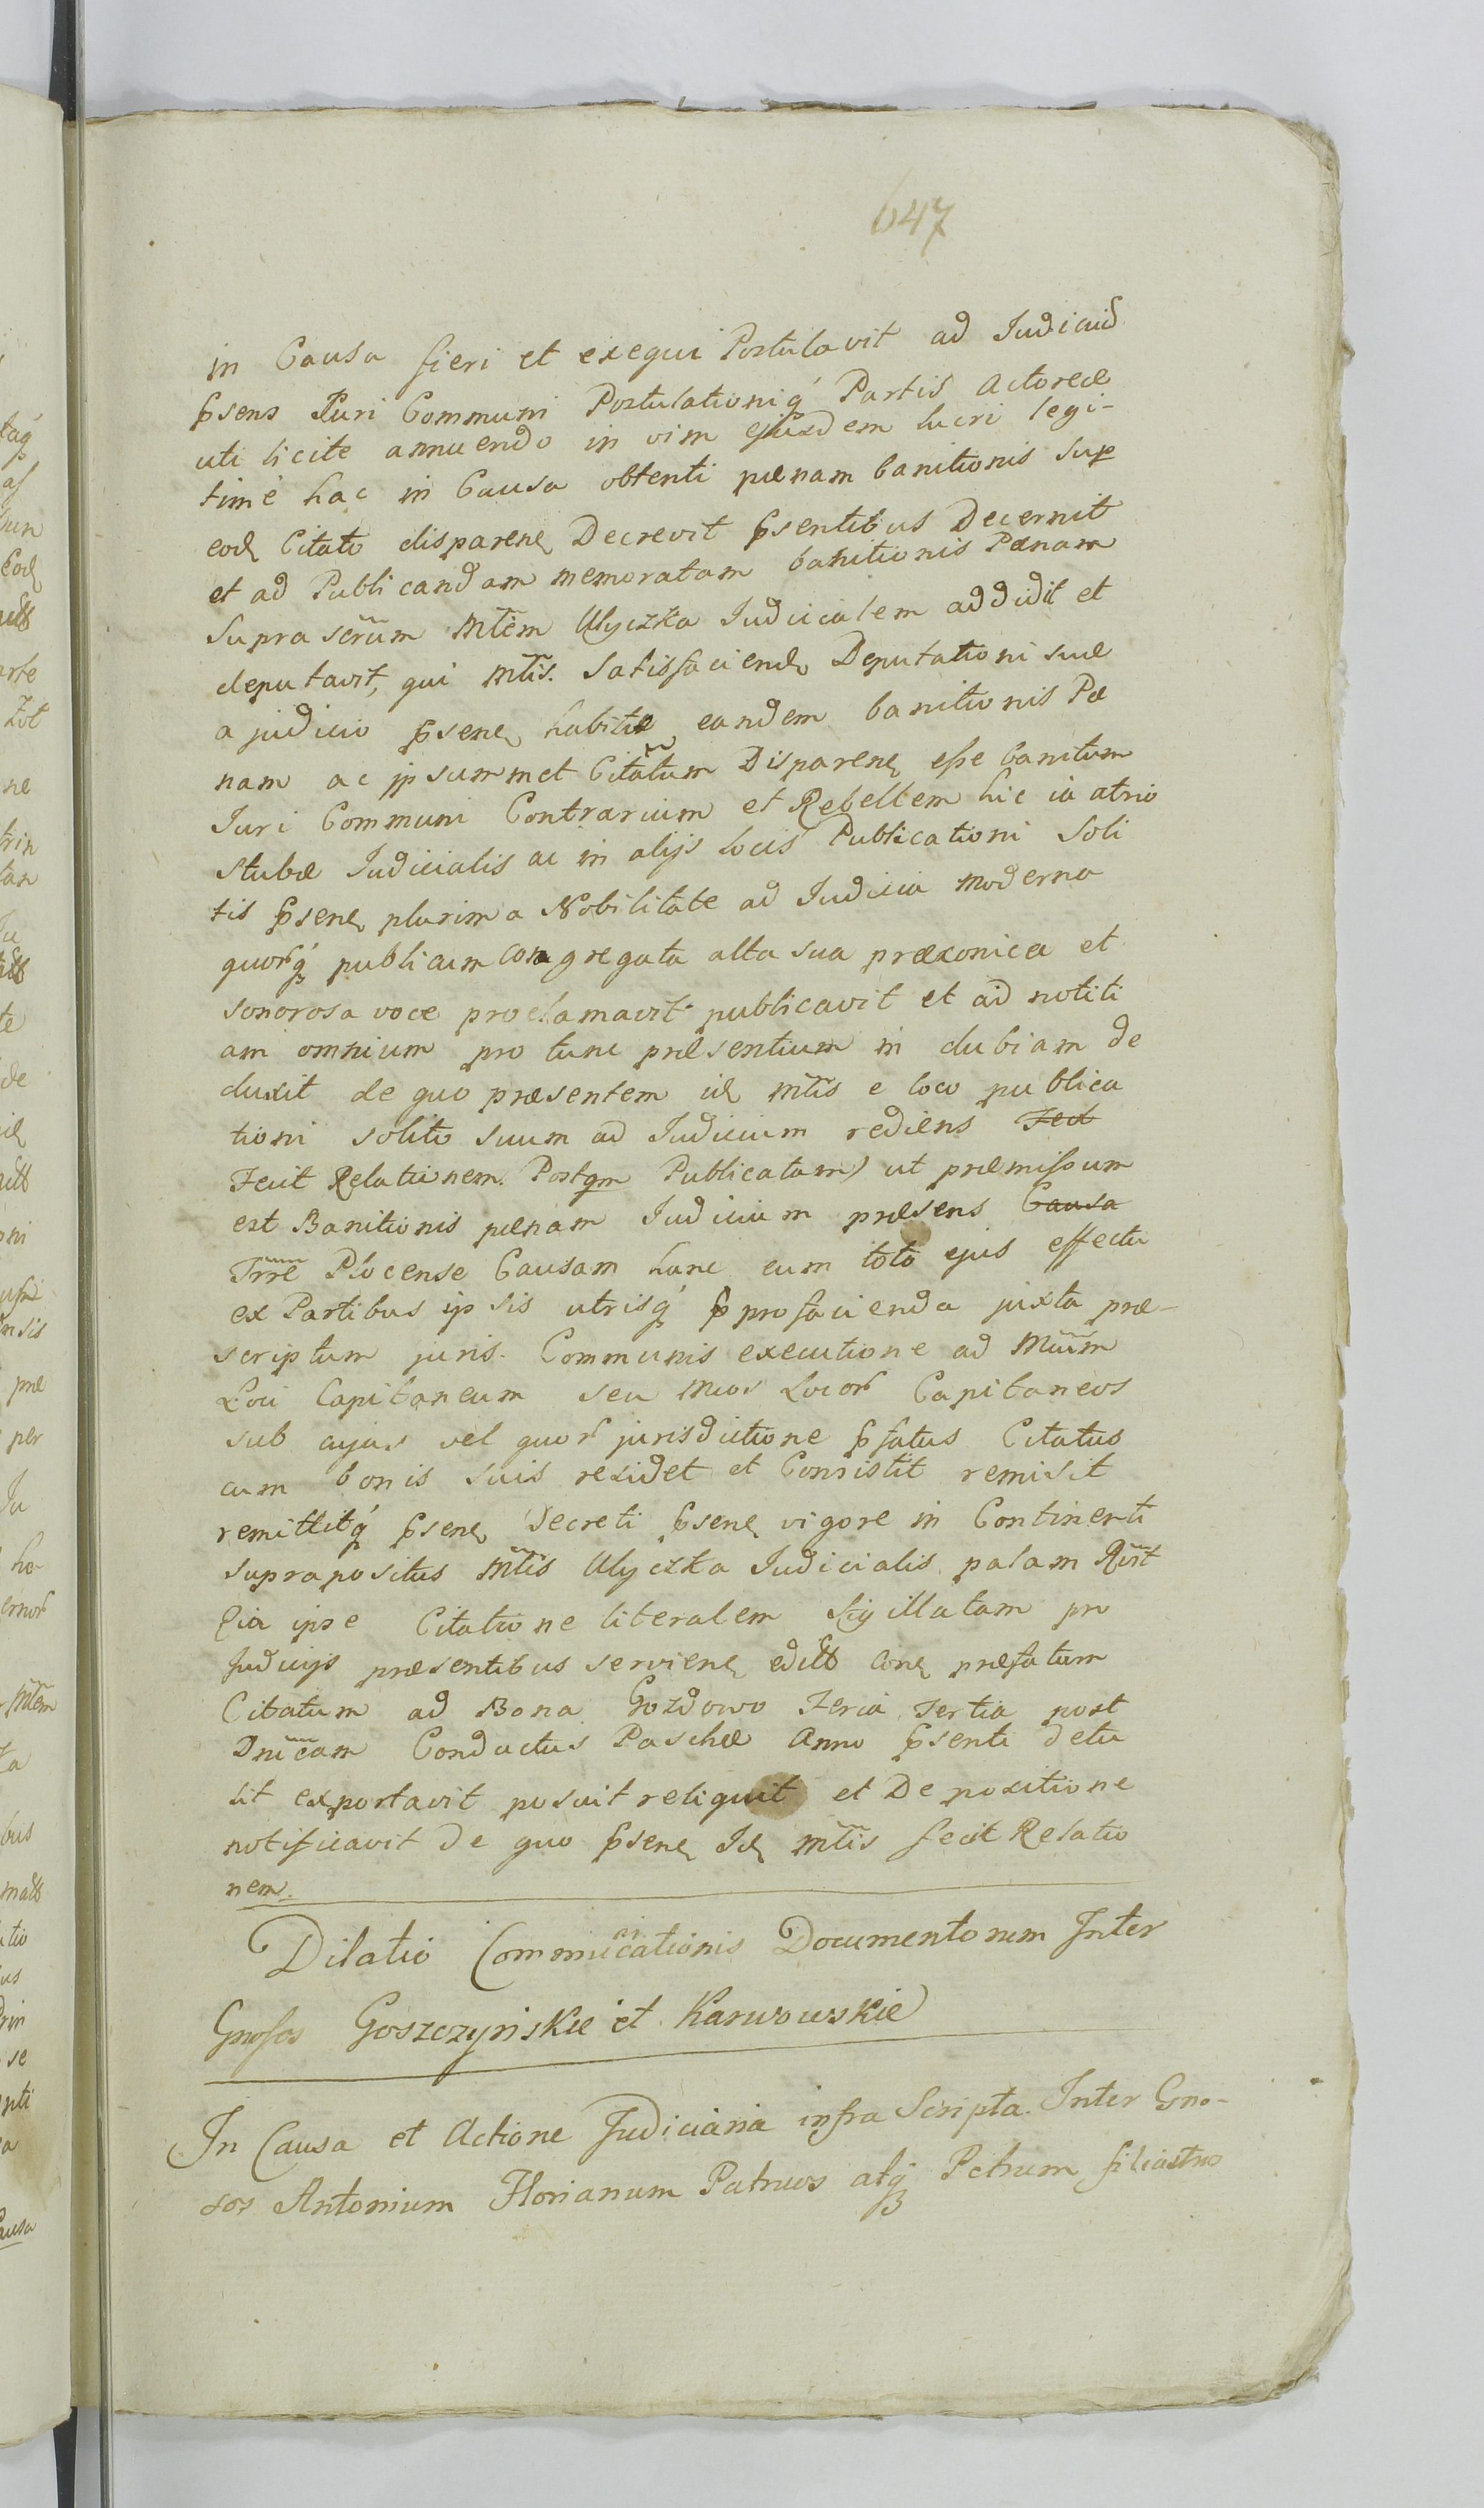 647
in Causa fieri et exequi Postulavit ad Judiciũ
p̃sens Juri Communi Postulationiq́ Partis Actoreæ
uti licite annuendo in vim ejusdem lucri legi-
timé hac in Causa obtenti pænam banitionis sup
eod Citato disparen Decrevit p̃sentibus Decernit
et ad Publicandam memoratam banitionis Pænam
Supra scrũm Mtẽm Ulyczka Judicialem addidit et
deputavit, qui Mtĩs. Satisfaciend Deputationi suæ
a judicio p̃sen habitæ eandem banitionis Pæ
nam ac ipsummet Citatum Disparen esse banitum
Juri Communi Contrarium et Rebellem hic in atrio
Stubæ Judicialis ac in alijs locis Publicationi Soli
tis p̃sen plurima Nobilitate ad Judicia moderna
quorq́ publicum congregata alta sua præconica et
sonorosa voce proclamavit publicavit et ad notiti
am omnium pro tunc præsentium in dubiam de
duxit de quo præsentem id mtĩs e loco publica
tioni solito suum ad Judicium rediens Fecit
Fecit Relationem. Postqm Publicatam) ut præmissum
est Banitionis pænam Judicium præsens Causa
Trrẽ Plocense Causam hanc cum toto ejus effectu
ex Partibus ipsis utrisq́ p̃ pro facienda juxta præ-
scriptum juris Communis executione ad Mũm
Loci Capitaneum seu Mcos Locor Capitaneos
sub cujus vel quor jurisdictione p̃fatus Citatus
cum bonis suis residet et Consistit remisit
remittitq́ p̃sen Decreti p̃sen vigore in Continenti
suprapositus Mtĩs Ulyczka Judicialis palam Rṽit
Qia ipse Citatione literalem Sigillatam pro
Judicijs præsentibus servien editt con præfatum
Citatum ad Bona Gozdowo Feria Tertia post
Dnĩcam Conductus Paschæ Anno p̃senti detu
lit exportavit posuit reliquit et De positione
notificavit De quo p̃sen Id mtĩs fecit Relatio
nem.
Dilatio Commũicationis Documentorum Inter
Gnosos Goszczyńskie et Karwowskie
In Causa et Actione Judiciaria infra Scripta. Inter Gno-
sos Antonium Florianum Patruos atq́ Petrum filiastros